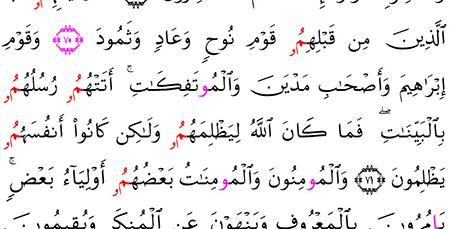 ٱلَّذِينَ مِن قَبْلِهِمُۥ قَوْمِ نُوحٍ وَعَادٍ وَثَمُودَ ٧٠ وَقَوْمِ
إِبْرَٰهِيمَ وَأَصْحَٰبِ مَدْيَنَ وَٱلْمُوتَفِكَٰتِۚ أَتَتْهُمُۥ رُسُلُهُمُۥ
بِٱلْبَيِّنَٰتِۖ فَمَا كَانَ ٱللَّهُ لِيَظْلِمَهُمُۥ وَلَٰكِن كَانُوٓا۟ أَنفُسَهُمُۥ
يَظْلِمُونَ ٧١ وَٱلْمُومِنُونَ وَٱلْمُومِنَٰتُ بَعْضُهُمُۥ أَوْلِيَآءُ بَعْضٍۚ
يَامُرُونَ بِٱلْمَعْرُوفِ وَيَنْهَوْنَ عَنِ ٱلْمُنكَرِ وَيُقِيمُونَ